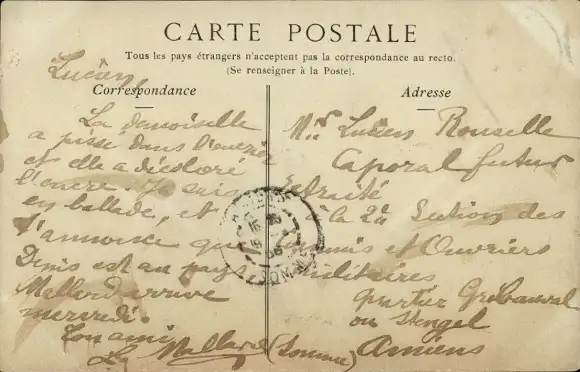 CARTE POSTALE
Tous les pays étrangers n'acceptent pas la correspondance au recto.
(Se renseigner à la Poste).
Correspondance
Lucien,
La demoiselle
a pissé dans l'encrier
et elle a décoloré
l'encre. Je suis
en ballade, et
t'annonce que
Denis est au pays
Mallard arrive
mercredi.
Ton ami
Mallard
Adresse
Lucien Rouselle
Caporal futur
retraité
à la 2e Section des
Commis et Ouvriers
militaires
quartier Gribeauval
ou Stengel
Amiens
(Somme)